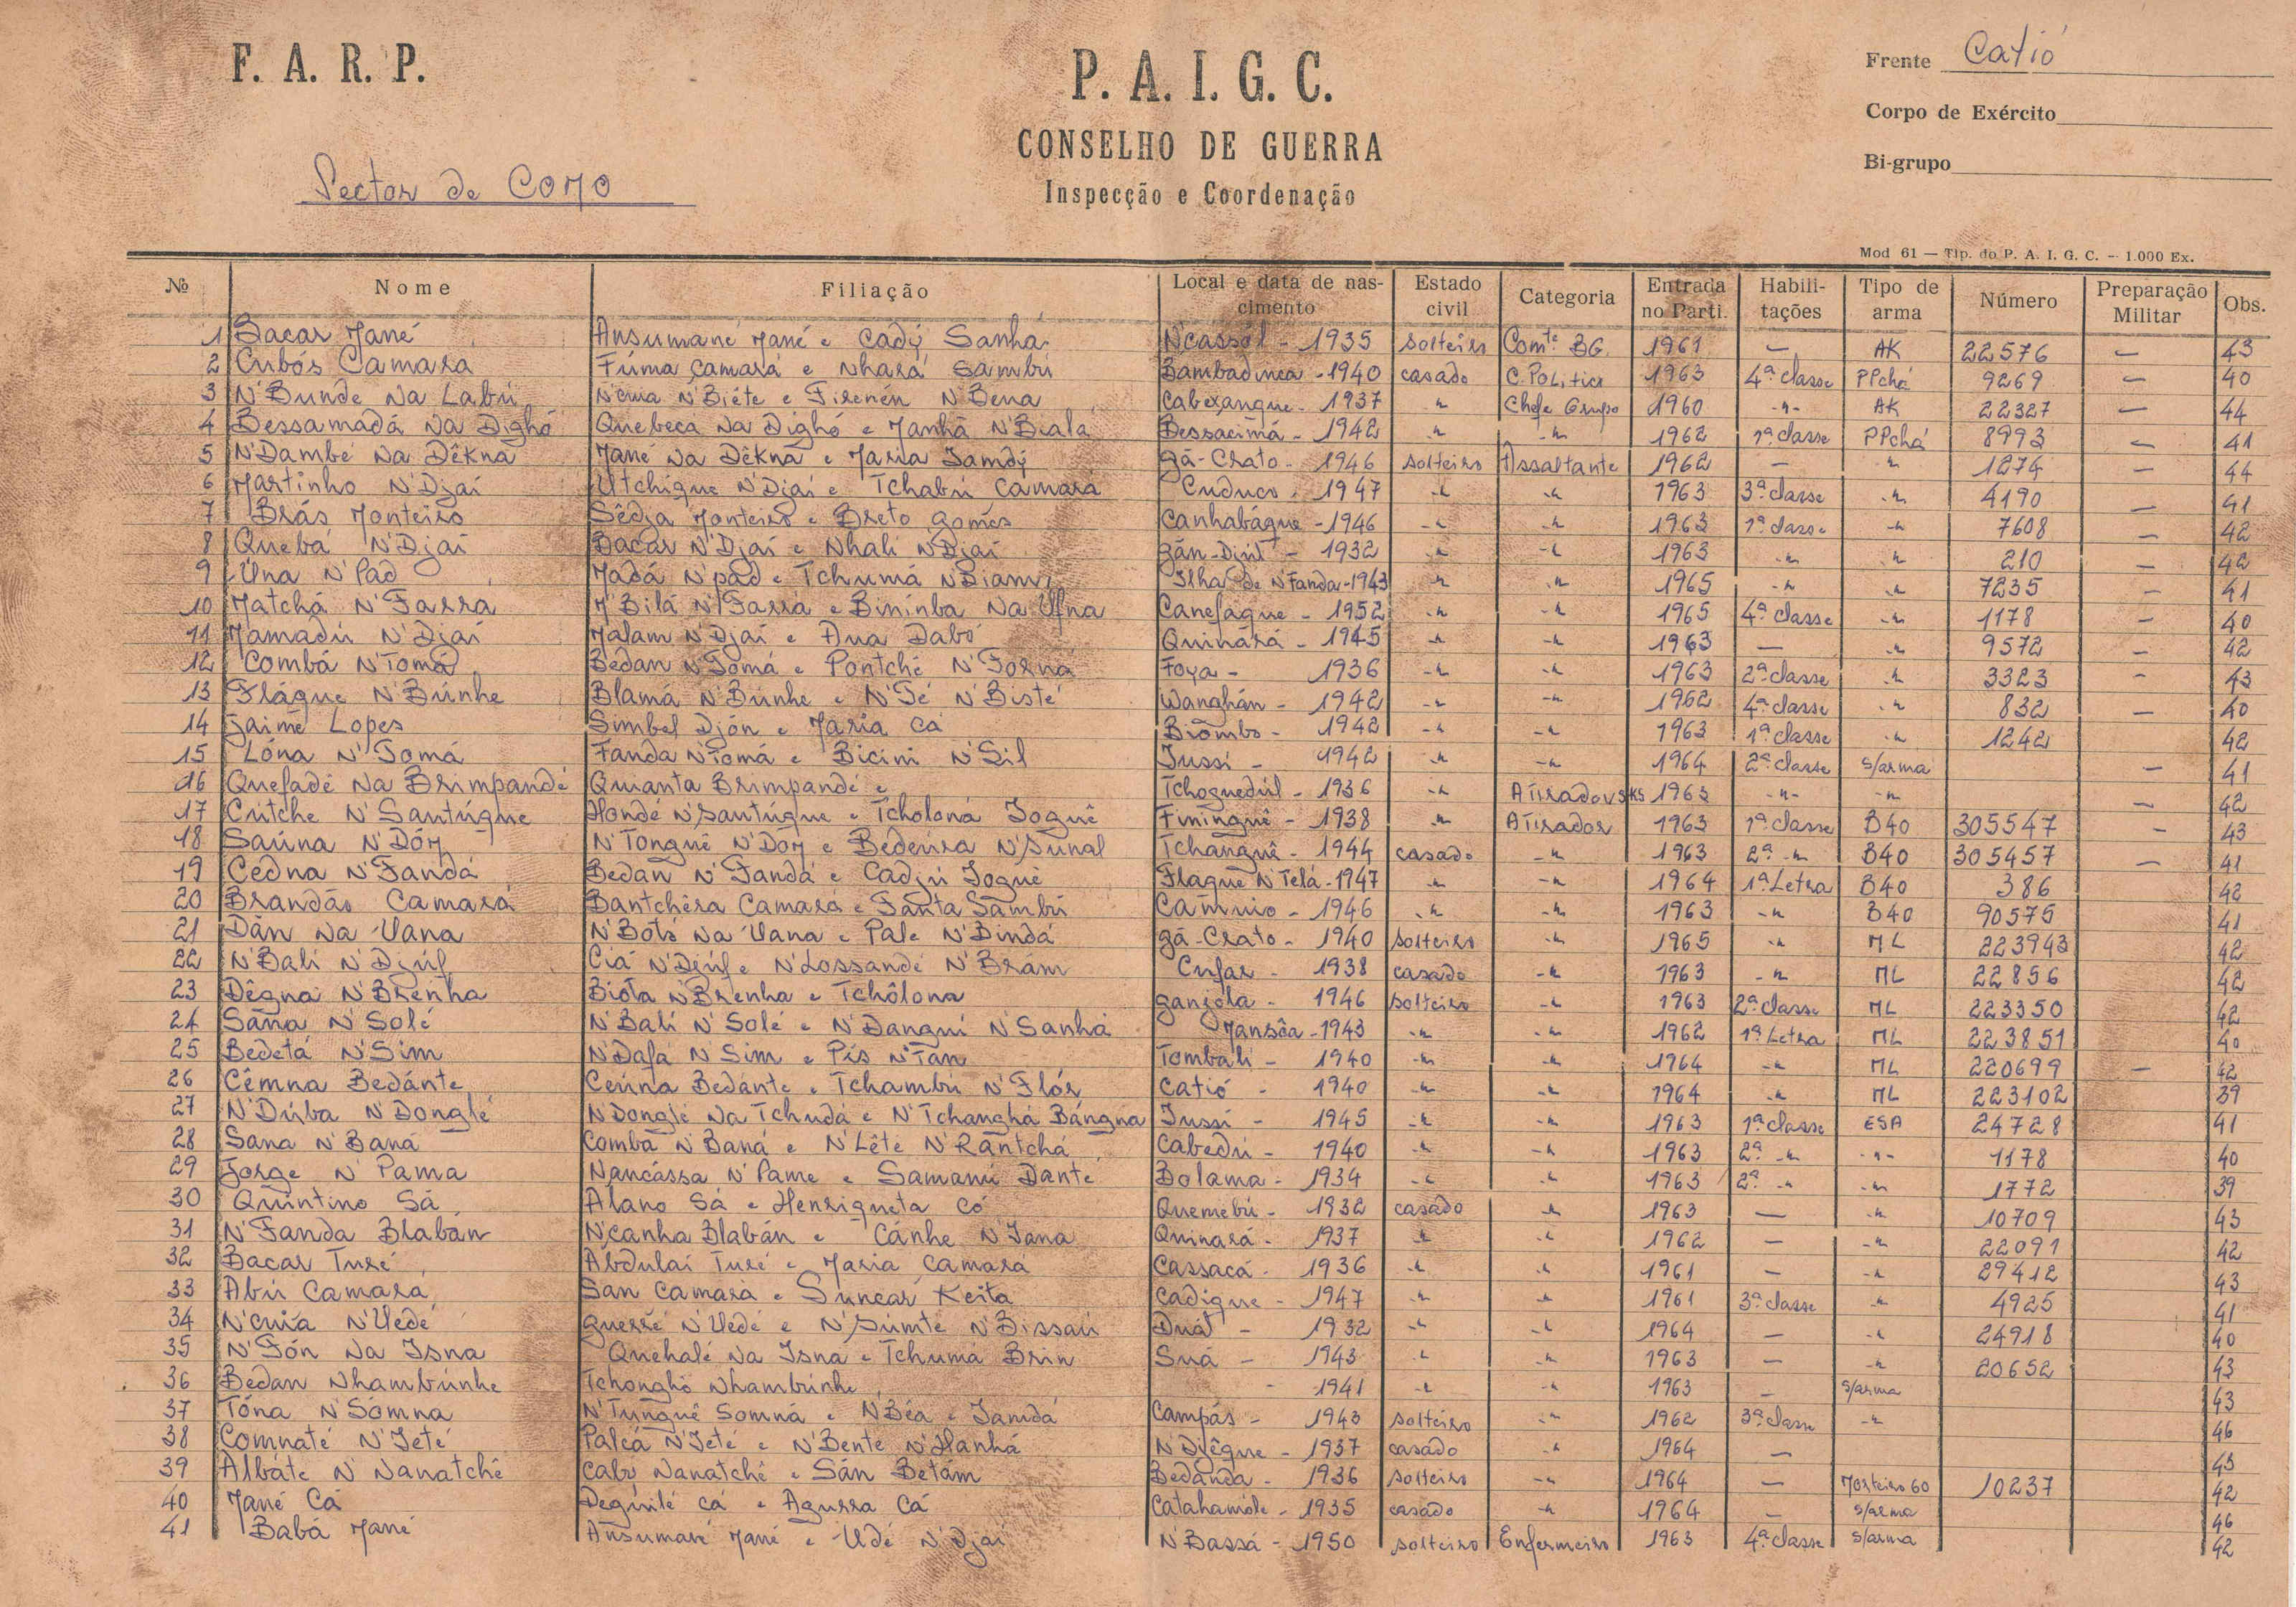 F. A. R. P.
P. A. I. G. C.
CONSELHO DE GUERRA
Inspecção e Coordenação
Sector de COMO
Frente Catió
Corpo de Exército
Bi-grupo
Mod 61 — Tip. do P. A. I. G. C. — 1.000 Ex.
Nº Nome Filiação Local e data de nascimento Estado civil Categoria Entrada no Parti. Habilitações Tipo de arma Número Preparação Militar Obs.
1 Bacar Mané Ansumané Mané e Cadý Sanhá N'cassól - 1935 solteiro Comte BG. 1961 — AK 22576 — 43
2 Cubós Camara Fúma Camará e Nhará Sambú Bambadinca - 1940 casado C. Politico 1963 4ª classe PPchá 9269 — 40
3 N'Bunde Na Labú N'cuia N'Biéte e Firenén N'Bena Cabexanque - 1937 -"- Chefe Grupo 1960 -"- AK 22327 — 44
4 Bessamadá Na Dighó Quebeca Na Dighó e Manhã N'Biala Bessacimá - 1942 -"- -"- 1962 1ª classe PPchá 8993 — 41
5 N'Dambé Na Dêkna Mané Na Dêkna e Maria Iamdý Gã-Crato - 1946 solteiro Assaltante 1962 — -"- 1274 — 44
6 Martinho N'Djai Utchigue N'Djai e Tchabú Camará Cuduco - 1947 -"- -"- 1963 3ª classe -"- 4190 — 41
7 Brás Monteiro Sêdja Monteiro e Breto Gomes Canhabáque - 1946 -"- -"- 1963 1ª classe -"- 7608 — 42
8 Quebá N'Djai Bacar N'Djai e Nhali N'Djai Gãn-Djúl - 1932 -"- -"- 1963 -"- -"- 210 — 42
9 Úna N'Pad Madá N'pad e Tchumá N'Diam Ilha de N'Fanda - 1943 -"- -"- 1965 -"- -"- 7235 — 41
10 Matchá N'Farra M'Bilá N'Farra e Binínba Na Ufna Canefáque - 1952 -"- -"- 1965 4ª classe -"- 1178 — 40
11 Mamadú N'Djai Malam N'Djai e Ana Dabó Quinárá - 1945 -"- -"- 1963 — -"- 9572 — 42
12 Combá N'Tomá Bedan N'Tomá e Pontché N'Forna Foya - 1936 -"- -"- 1963 2ª classe -"- 3323 — 43
13 Flágue N'Búnhe Blamá N'Búnhe e N'Té N'Bisté Wanghán - 1942 -"- -"- 1962 4ª classe -"- 832 — 40
14 Jaime Lopes Simbel Djón e Maria Cá Biombo - 1942 -"- -"- 1963 1ª classe -"- 1242 42
15 Lóna N'Tomá Fanda N'Tomá e Bicini N'Sil Iussi - 1942 -"- -"- 1964 2ª classe s/arma — 41
16 Quefadé Na Brimpandé Quianta Brimpandé e Tchoguedúl - 1936 -"- Atirador SKS 1963 -"- -"- — 42
17 Cutche N'Santúgue Hondé N'Santúgue e Tcholoná Iogué Finingué - 1938 -"- Atirador 1963 1ª classe B40 305547 — 43
18 Saúna N'Dóm N'Tongué N'Dóm e Bedeúra N'Sunal Tchangué - 1944 casado -"- 1963 2ª -"- B40 305457 — 41
19 Cedna N'Fandá Bedan N'Fandá e Cadjú Iogué Flaque N'Telá - 1947 -"- -"- 1964 1ª Letra B40 386 42
20 Brandão Camará Bantchéra Camará e Fanta Sambú Camuio - 1946 -"- -"- 1963 -"- B40 90575 41
21 Dãn Na Uana N'Botó Na Uana e Pale N'Bindá Gã-Crato - 1940 solteiro -"- 1965 -"- ML 223943 42
22 N'Bali N'Djúf Ciá N'Djúf e N'Lossandé N'Brám Cufar - 1938 casado -"- 1963 -"- ML 22856 42
23 Dêgna N'Brenha Biota N'Brenha e Tchôlona Ganjola - 1946 solteiro -"- 1963 2ª classe ML 223350 42
24 Sana N'Solé N'Bali N'Solé e N'Dangui N'Sanha Mansôa - 1943 -"- -"- 1962 1ª Letra ML 223851 40
25 Bedetá N'Sim N'Dafá N'Sim e Pis N'Tan Tombali - 1940 -"- -"- 1964 -"- ML 220699 — 42
26 Cêmna Bedánte Ceúna Bedánte e Tchambú N'Flór Catió - 1940 -"- -"- 1964 -"- ML 223102 39
27 N'Dúba N'Donglé N'Donglé Na Tchudá e N'Tchanghá Bángna Iussi - 1945 -"- -"- 1963 1ª classe ESA 24728 41
28 Sana N'Baná Combá N'Baná e N'Lêté N'Rántchá Cabedú - 1940 -"- -"- 1963 2ª -"- -"- 1178 40
29 Jorge N'Pama Nancássa N'Pame e Samanú Dante Bolama - 1934 -"- -"- 1963 2ª -"- -"- 1772 39
30 Quintino Sá Alano Sá e Henriqueta Có Quemebú - 1932 casado -"- 1963 — -"- 10709 43
31 N'Fanda Blabán N'canha Blabán e Cánhe N'Iana Quinará - 1937 -"- -"- 1962 — -"- 22091 42
32 Bacar Turé Abdulai Turé e Maria Camará Cassacá - 1936 -"- -"- 1961 — -"- 29412 43
33 Abú Camará San Camará e Suncar Keita Cadique - 1947 -"- -"- 1961 3ª classe -"- 4925 41
34 N'cuia N'Uedé Guerré N'Uedé e N'Súmté N'Bissaú Duát - 1932 -"- -"- 1964 — -"- 24918 40
35 N'Fón Na Isna Quehalé Na Isná e Tchumá Brin Suá - 1943 -"- -"- 1963 — -"- 20652 43
36 Bedan Nhambúnhe Tchonghó Nhambúnhe - 1941 -"- -"- 1963 — s/arma 43
37 Tóna N'Somna N'Tungué Somná e N'Béa e Iamdá Campás - 1943 solteiro -"- 1962 3ª classe -"- 46
38 Comnaté N'Ieté Palcá N'Ieté e N'Bente N'Hanhá N'Djêque - 1937 casado -"- 1964 — 43
39 Albáte N'Nanatché Cabi Nanatché e Sán Betám Bedanda - 1936 solteiro -"- 1964 — Morteiro 60 10237 42
40 Mané Cá Deguilé Cá e Agurra Cá Catahamóle - 1935 casado -"- 1964 — s/arma 46
41 Babá Mané Ansumané Mané e Udé N'Djai N'Bassá - 1950 solteiro Enfermeiro 1963 4ª classe s/arma 42